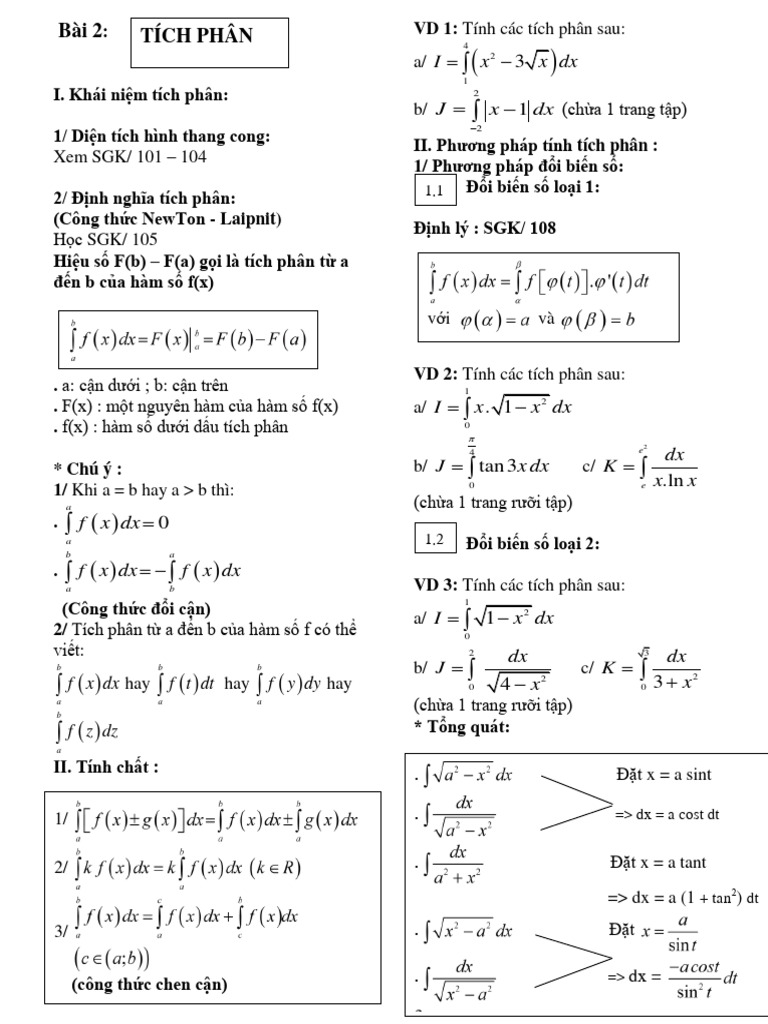 Bài 2:
TÍCH PHÂN
I. Khái niệm tích phân:
1/ Diện tích hình thang cong:
Xem SGK/ 101 – 104
2/ Định nghĩa tích phân:
(Công thức NewTon - Laipnit)
Học SGK/ 105
Hiệu số F(b) – F(a) gọi là tích phân từ a
đến b của hàm số f(x)
∫_a^b f(x)dx = F(x)|_a^b = F(b) − F(a)
. a: cận dưới ; b: cận trên
. F(x) : một nguyên hàm của hàm số f(x)
. f(x) : hàm số dưới dấu tích phân
* Chú ý :
1/ Khi a = b hay a > b thì:
. ∫_a^a f(x)dx = 0
. ∫_a^b f(x)dx = −∫_b^a f(x)dx
(Công thức đổi cận)
2/ Tích phân từ a đến b của hàm số f có thể
viết:
∫_a^b f(x)dx hay ∫_a^b f(t)dt hay ∫_a^b f(y)dy hay
∫_a^b f(z)dz
II. Tính chất :
1/ ∫_a^b [f(x) ± g(x)]dx = ∫_a^b f(x)dx ± ∫_a^b g(x)dx
2/ ∫_a^b k f(x)dx = k∫_a^b f(x)dx (k ∈ R)
3/ ∫_a^b f(x)dx = ∫_a^c f(x)dx + ∫_c^b f(x)dx
(c ∈ (a;b))
(công thức chen cận)
VD 1: Tính các tích phân sau:
a/ I = ∫_1^4 (x² − 3√x)dx
b/ J = ∫_{−2}^2 |x − 1| dx (chừa 1 trang tập)
II. Phương pháp tính tích phân :
1/ Phương pháp đổi biến số:
1.1 Đổi biến số loại 1:
Định lý : SGK/ 108
∫_a^b f(x)dx = ∫_α^β f[φ(t)].φ'(t)dt
với φ(α) = a và φ(β) = b
VD 2: Tính các tích phân sau:
a/ I = ∫_0^1 x.√(1 − x²) dx
b/ J = ∫_0^{π/4} tan 3x dx c/ K = ∫_e^{e²} dx/(x.ln x)
(chừa 1 trang rưỡi tập)
1.2 Đổi biến số loại 2:
VD 3: Tính các tích phân sau:
a/ I = ∫_0^1 √(1 − x²) dx
b/ J = ∫_0^2 dx/√(4 − x²) c/ K = ∫_0^{√3} dx/(3 + x²)
(chừa 1 trang rưỡi tập)
* Tổng quát:
. ∫√(a² − x²) dx Đặt x = a sint
. ∫dx/√(a² − x²) => dx = a cost dt
. ∫dx/(a² + x²) Đặt x = a tant
=> dx = a (1 + tan²) dt
. ∫√(x² − a²) dx Đặt x = a/sin t
. ∫dx/√(x² − a²) => dx = (−a cost)/(sin² t) dt